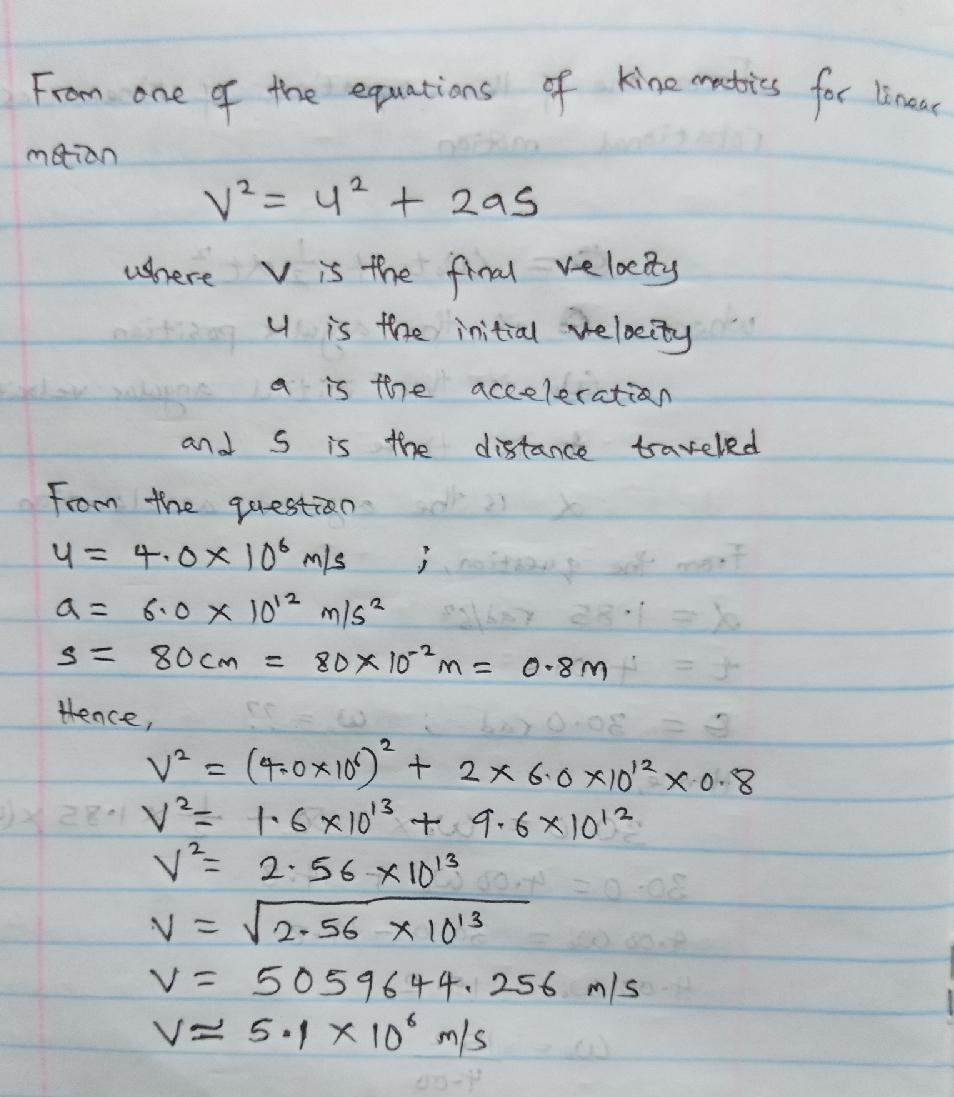 From one of the equations of kinematics for linear
motion
V² = u² + 2as
where v is the final velocity
u is the initial velocity
a is the acceleration
and s is the distance traveled
From the question
u = 4.0 × 10⁶ m/s ;
a = 6.0 × 10¹² m/s²
s = 80cm = 80 × 10⁻² m = 0.8m
Hence,
V² = (4.0×10⁶)² + 2 × 6.0 × 10¹² × 0.8
V² = 1.6 × 10¹³ + 9.6 × 10¹²
V² = 2.56 × 10¹³
V = √2.56 × 10¹³
V = 5059644.256 m/s
V ≃ 5.1 × 10⁶ m/s